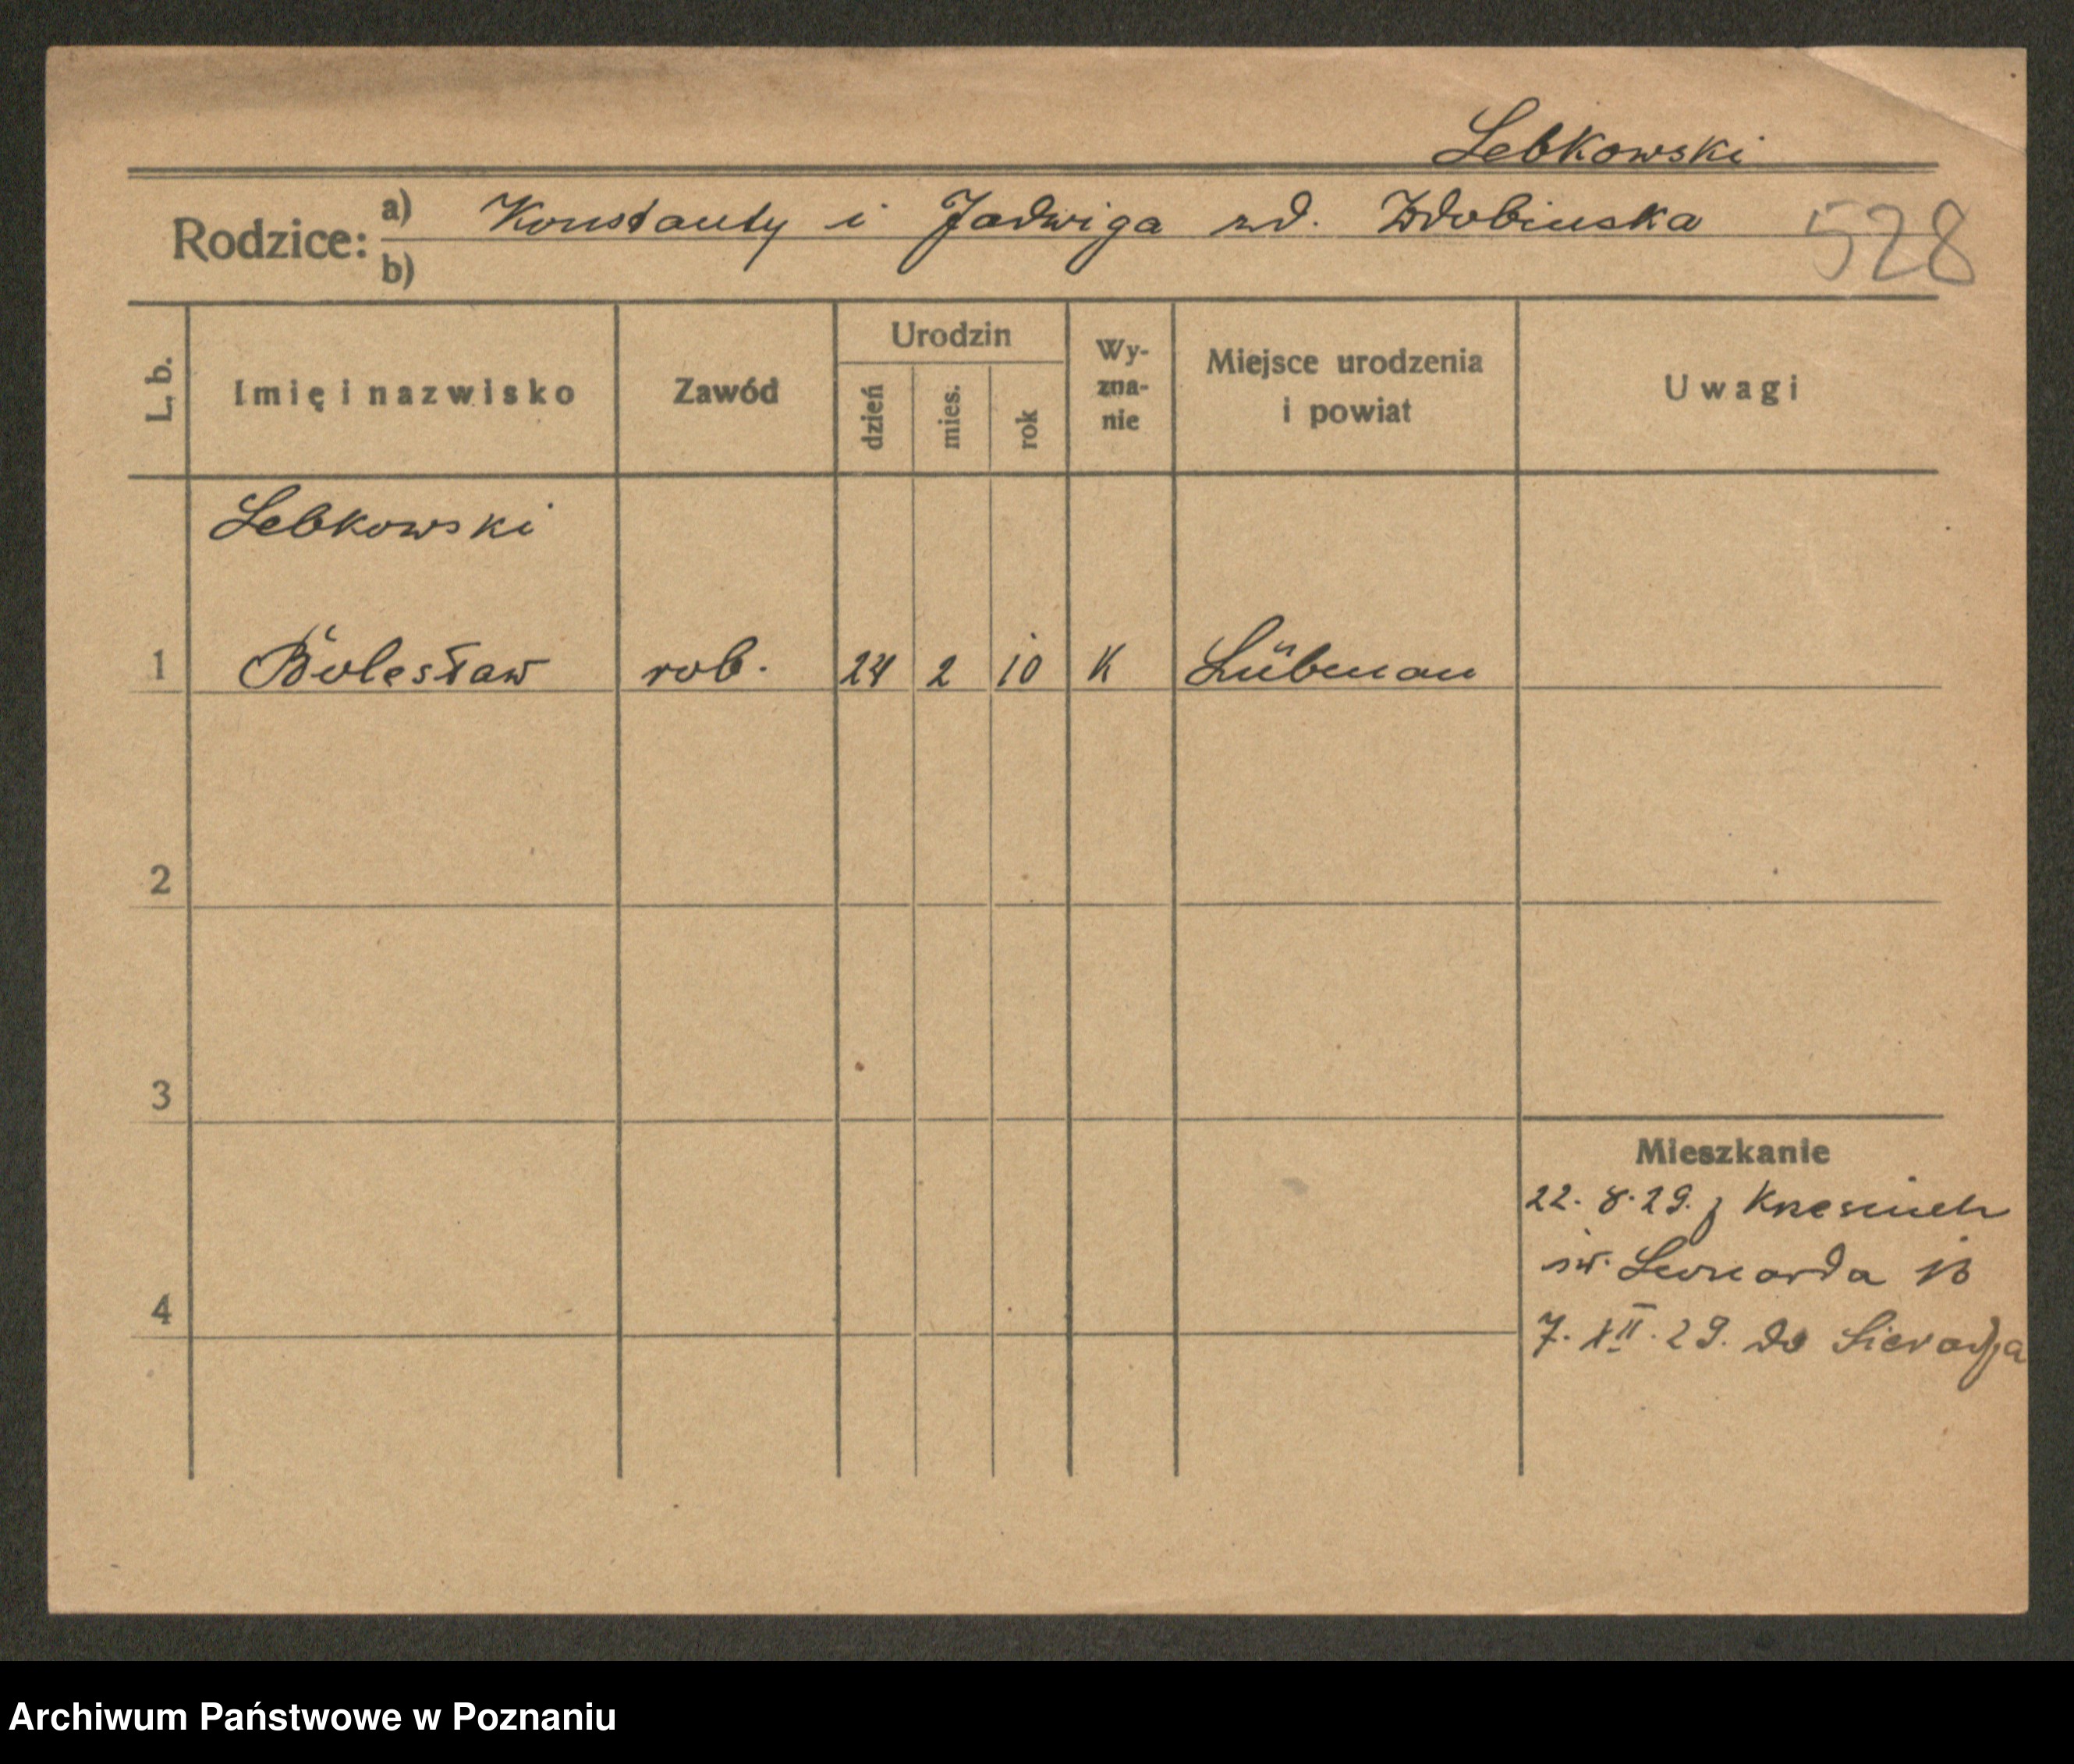 Lebkowski
Rodzice: a) Konstanty i Jadwiga zd. Zdobinska 528
b)
L. b. Imię i nazwisko Zawód Urodzin dzień mies. rok Wy-zna-nie Miejsce urodzenia i powiat Uwagi
Lebkowski
1 Bolesław rob. 24 2 10 K Lübenau
2
3
Mieszkanie
22. 8. 29. z
św. Leonarda
4
7. XII. 29. do Sieradza
Archiwum Państwowe w Poznaniu